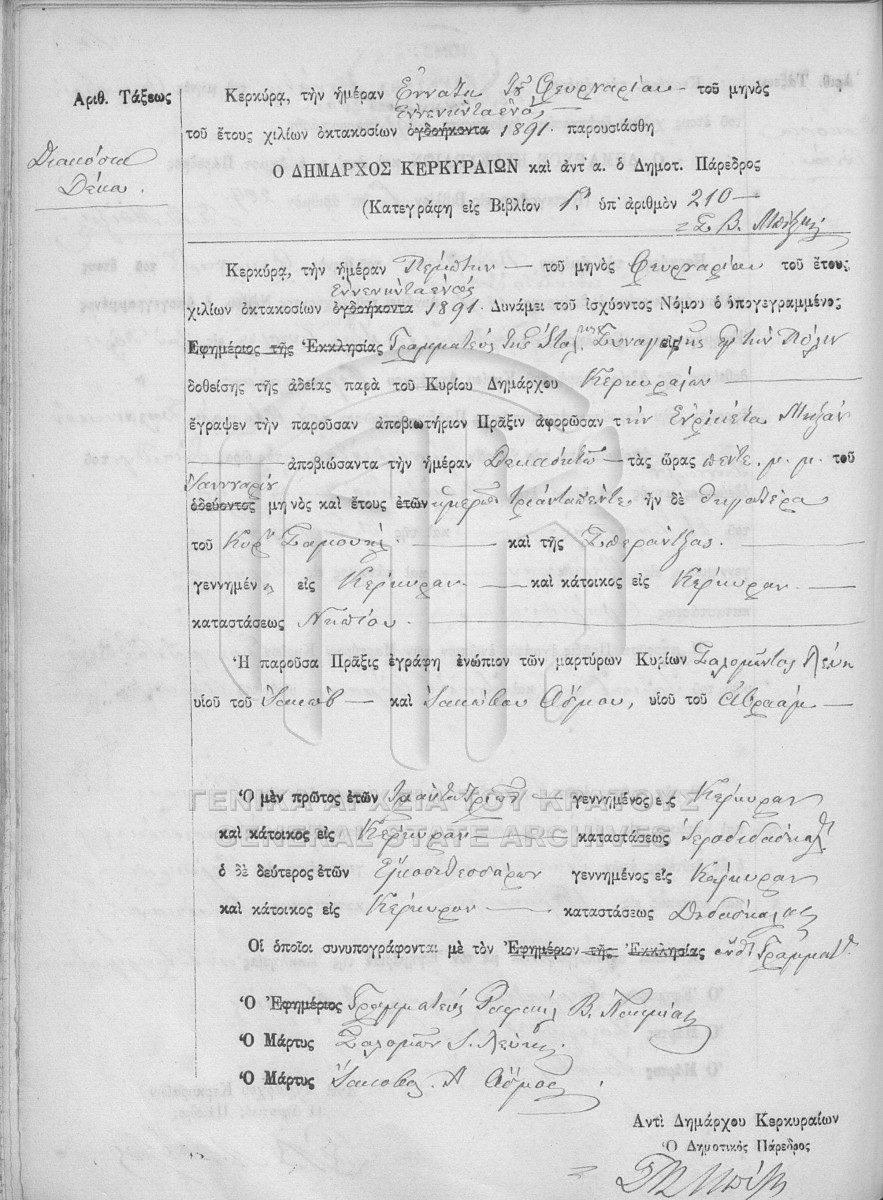 Αριθ. Τάξεως
Διακόσια
Δέκα.
Κερκύρα, τὴν ἡμέραν Ἐννάτη τοῦ Φεβρουαρίου — τοῦ μηνὸς
Ἐννενῆντα ἑνός
τοῦ ἔτους χιλίων ὀκτακοσίων ὀγδοήκοντα 1891. παρουσιάσθη
Ο ΔΗΜΑΡΧΟΣ ΚΕΡΚΥΡΑΙΩΝ καὶ ἀντ' α. ὁ Δημοτ. Πάρεδρος
(Κατεγράφη εἰς Βιβλίον ὑπ' ἀριθμὸν 210 —
Κερκύρα, τὴν ἡμέραν Πέμπτην — τοῦ μηνὸς Φευρουαρίου τοῦ ἔτους
Ἐννενῆντα ἑνός
χιλίων ὀκτακοσίων ὀγδοήκοντα 1891. Δυνάμει τοῦ ἰσχύοντος Νόμου ὁ ὑπογεγραμμένος
Ἐφημέριος τῆς Ἐκκλησίας Γραμματεὺς τῆς Συναγωγῆς εἰς τὴν Πόλιν
δοθείσης τῆς ἀδείας παρὰ τοῦ Κυρίου Δημάρχου Κερκυραίων
ἔγραψεν τὴν παροῦσαν ἀποβιωτήριον Πρᾶξιν ἀφορῶσαν τ ὴν Ἐνρικέτα
ἀποβιώσαντα τὴν ἡμέραν Δεκαοκτὼ — τὰς ὥρας πέντε μ. μ. τοῦ
Ἰανουαρίου
ὁδεύοντος μηνὸς καὶ ἔτους ἐτῶν ἡμερῶν τριανταπέντε ἦν δὲ θυγατέρα
τοῦ Κυρ Σαμουὴλ — καὶ τῆς Σπεράντζας.
γεννημέν η εἰς Κέρκυραν — καὶ κάτοικος εἰς Κέρκυραν.
καταστάσεως Νηπίου.
Ἡ παροῦσα Πρᾶξις ἐγράφη ἐνώπιον τῶν μαρτύρων Κυρίων Σαλομῶντος Λεύη
υἱοῦ τοῦ Ἰακὼβ — καὶ Ἰακώβου Ὀσμου, υἱοῦ τοῦ Ἀβραὰμ —
Ὁ μὲν πρῶτος ἐτῶν Τριαντατριῶν — γεννημένος εἰς Κέρκυραν
καὶ κάτοικος εἰς Κέρκυραν — καταστάσεως Ἱεροδιδάσκαλ.
ὁ δὲ δεύτερος ἐτῶν Εἰκοσιτεσσάρων γεννημένος εἰς Κέρκυραν
καὶ κάτοικος εἰς Κέρκυραν — καταστάσεως Διδάσκαλος
Οἱ ὁποῖοι συνυπογράφονται μὲ τὸν Ἐφημέριον τῆς Ἐκκλησίας Γραμματ.
Ὁ Ἐφημέριος Γραμματεὺς Ραφαὴλ Β.
Ὁ Μάρτυς Σαλομὼν Ι. Λεύης.
Ὁ Μάρτυς Ἰακώβος Α Ὄσμος
Ἀντὶ Δημάρχου Κερκυραίων
Ὁ Δημοτικὸς Πάρεδρος
ΓΕΝΙΚΑ ΑΡΧΕΙΑ ΤΟΥ ΚΡΑΤΟΥΣ
GENERAL STATE ARCHIVES